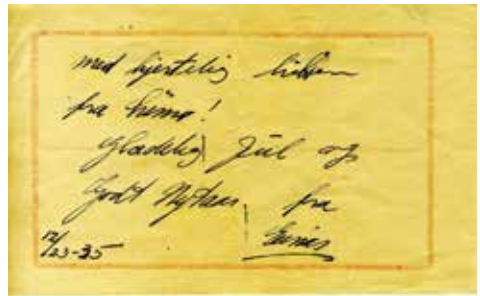 med hjertelig hilsen
fra
Glædelig Jul og
Godt Nytaar, fra
12/23-35